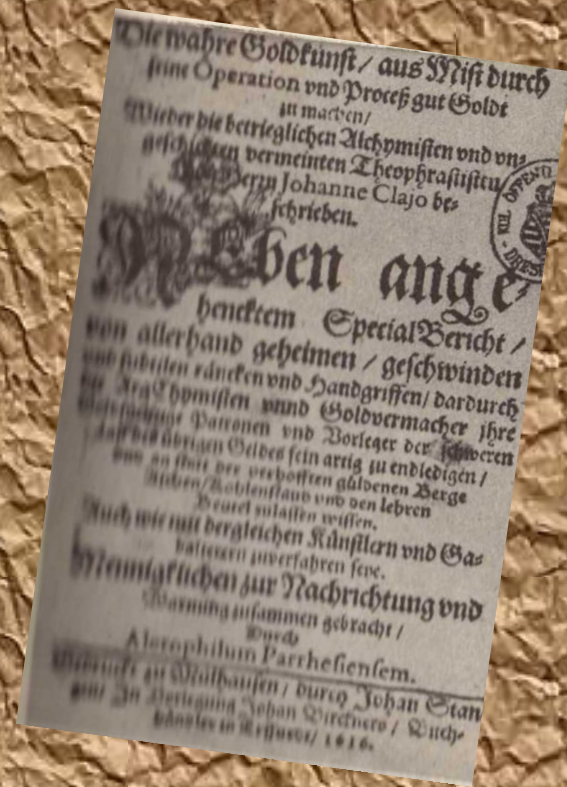 Die wahre Goldkunst / aus Mist durch
seine Operation vnd Proceß gut Goldt
zu machen /
Wieder die betrieglichen Alchymisten vnd vn-
geschickten vermeinten Theophrasisten
Herrn Johanne Clajo be-
schrieben.
NEben ange-
hencktem Special Bericht /
von allerhand geheimen / geschwinden
vnd subtilen räncken vnd Handgriffen / dardurch
die Chymisten vnnd Goldvermacher jhre
Patronen vnd Vorleger der schweren
Last des übrigen Geldes fein artig zu endledigen /
vnd an statt der verhofften güldenen Berge
Aschen / Kohlenstaub vnd den lehren
Beutel zulassen wissen.
Auch wie mit dergleichen Künstlern vnd Ga-
zuverfahren seye.
Menniglichen zur Nachrichtung vnd
Warnung zusammen gebracht /
Durch
Aletophilum Parrhesiensem.
Gedruckt zu Mülhausen / durch Johan Stan
gen / In Verlegung Johan Birckners / Buch-
händler in Erffurdt / 1616.